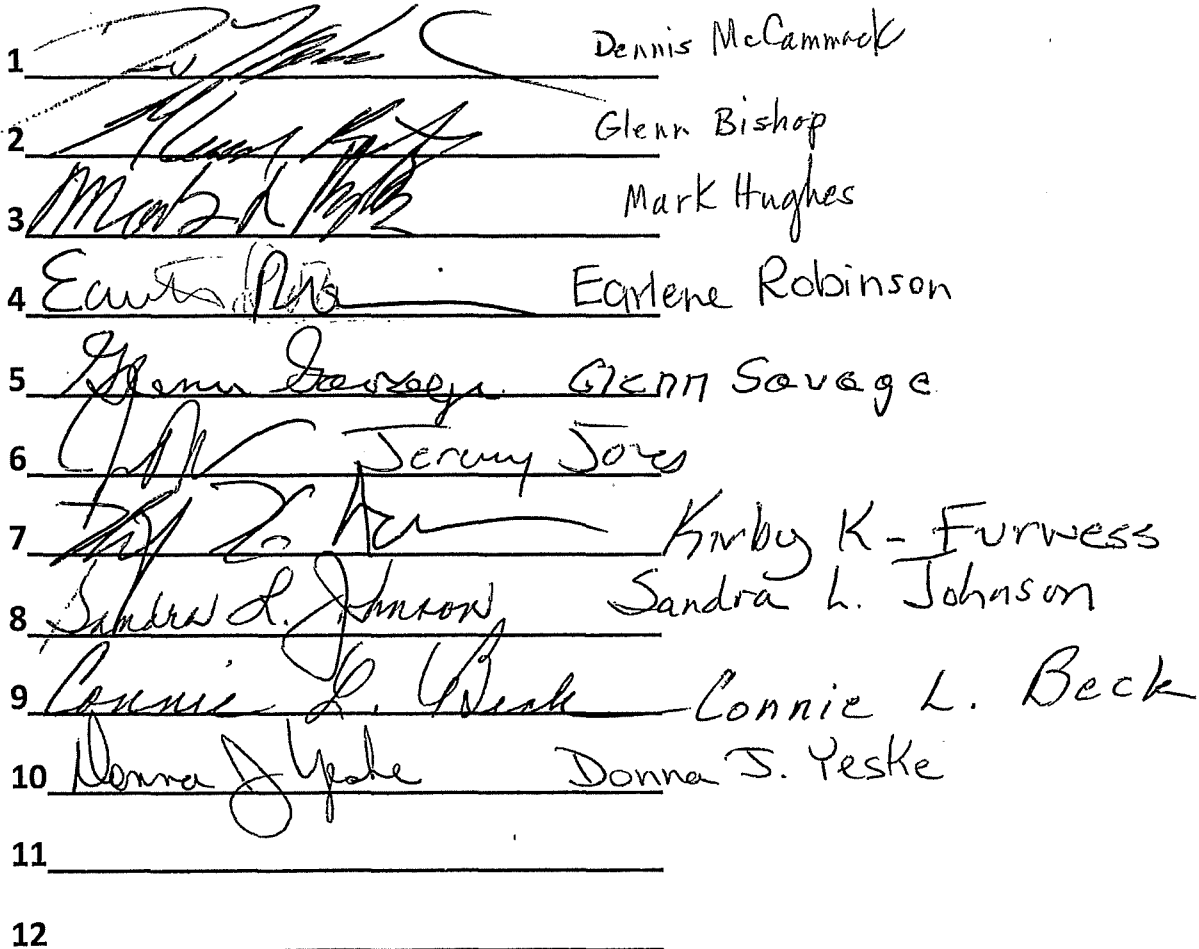 1 Dennis McCammack
2 Glenn Bishop
3 Mark Hughes
4 Earlene Robinson
5 Glenn Savage
6 Jeremy Jones
7 Kirby K- Furness
8 Sandra L. Johnson Sandra L. Johnson
9 Connie L. Beck Connie L. Beck
10 Donna J Yeske Donna J. Yeske
11
12